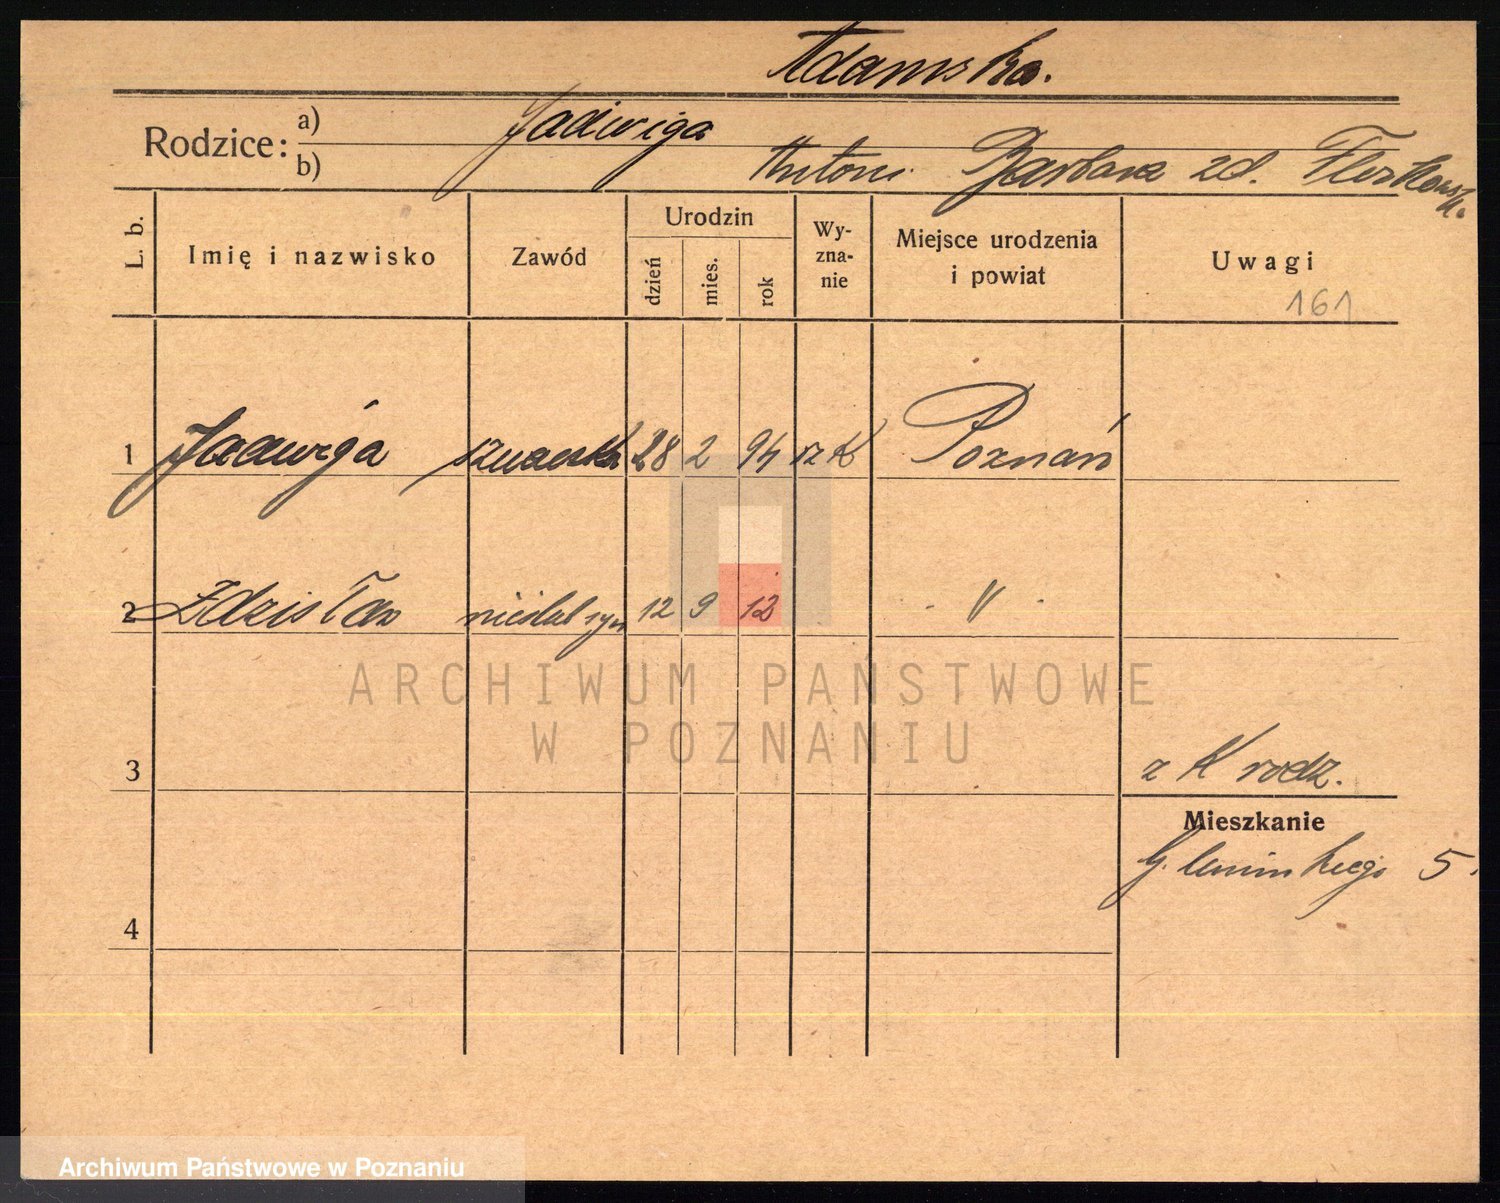 Adamska.
Rodzice: a) Jadwiga
b) Antoni Barbara zd.
L. b.
Imię i nazwisko
Zawód
Urodzin
dzień
mies.
rok
Wy-
zna-
nie
Miejsce urodzenia
i powiat
Uwagi
161
1 Jadwiga szwaczka 28 2 94 rz K Poznań
2 Zdzisław nieślub syn 12 9 12 - " -
3
z K rodz.
Mieszkanie
5.
4
ARCHIWUM PAŃSTWOWE
W POZNANIU
Archiwum Państwowe w Poznaniu